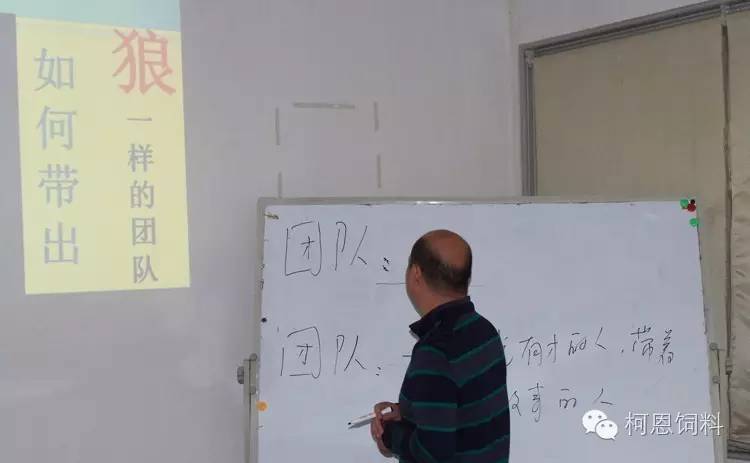 如何带出
狼一样的团队
团队:
团队:一 有才的人,带着
事的人
柯恩饲料